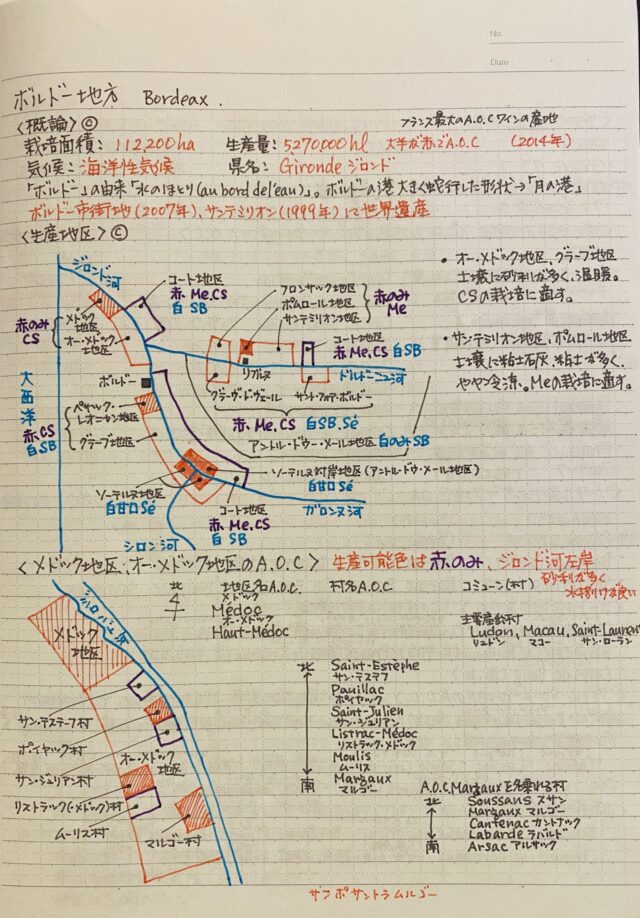 No.
Date
ボルドー地方 Bordeax.
〈概論〉◎ フランス最大のA.O.C.ワインの産地
栽培面積：112,200ha 生産量：5270,000hl 大半が赤でA.O.C (2014年)
気候：海洋性気候 県名：Gironde ジロンド
「ボルドー」の由来「水のほとり(au bord del'eau)」。ボルドーの港 大きく蛇行した形状→「月の港」
ボルドー市街地(2007年)、サンテミリオン(1999年)に世界遺産
〈生産地区〉©
ジロンド河
コート地区
赤 Me.CS
白 SB
メドック地区
オー・メドック地区
赤のみ
CS
フロンサック地区
ポムロール地区
サンテミリオン地区
赤のみ
Me
コート地区
赤 Me.CS 白SB
リブルヌ
ドルドーニュ河
ボルドー
グラーヴ・ド・ヴェール
サント・フォア・ボルドー
赤 Me.CS 白SB.Sé
アントル・ドゥー・メール地区 白のみSB
大西洋
赤CS
白SB
ペサック・レオニャン地区
グラーブ地区
ソーテルヌ対岸地区(アントル・ドゥ・メール地区)
白甘口Sé
ソーテルヌ地区
白甘口Sé
コート地区
赤Me.CS
白SB
ガロンヌ河
シロン河
・オー・メドック地区、グラーブ地区
土壌に砂利が多く、温暖。
CSの栽培に適す。
・サンテミリオン地区、ポムロール地区
土壌に粘土石灰、粘土が多く、
やや冷涼。Meの栽培に適す。
〈メドック地区、オー・メドック地区のA.O.C〉 生産可能色は赤のみ、ジロンド河左岸
砂利が多く
水捌けが良い
北 地区名A.O.C. 村名A.O.C コミューン(村)
メドック
Médoc
オー・メドック
Haut-Médoc
主要産出村
Ludon, Macau, Saint-Laurent
リュドン マコー サン・ローラン
ジロンド河
メドック地区
サン・テステーフ村
ポイヤック村
オー・メドック地区
サン・ジュリアン村
リストラック(・メドック)村
ムーリス村
マルゴー村
北 Saint-Estèphe
サン・テステフ
Pauillac
ポイヤック
Saint-Julien
サン・ジュリアン
Listrac-Médoc
リストラック・メドック
Moulis
ムーリス
南 Margaux
マルゴー
A.O.C.Margauxを名乗れる村
北 Soussans スサン
Margaux マルゴー
Cantenac カントナック
Labarde ラバルド
南 Arsac アルサック
サフポサントラムルゴー